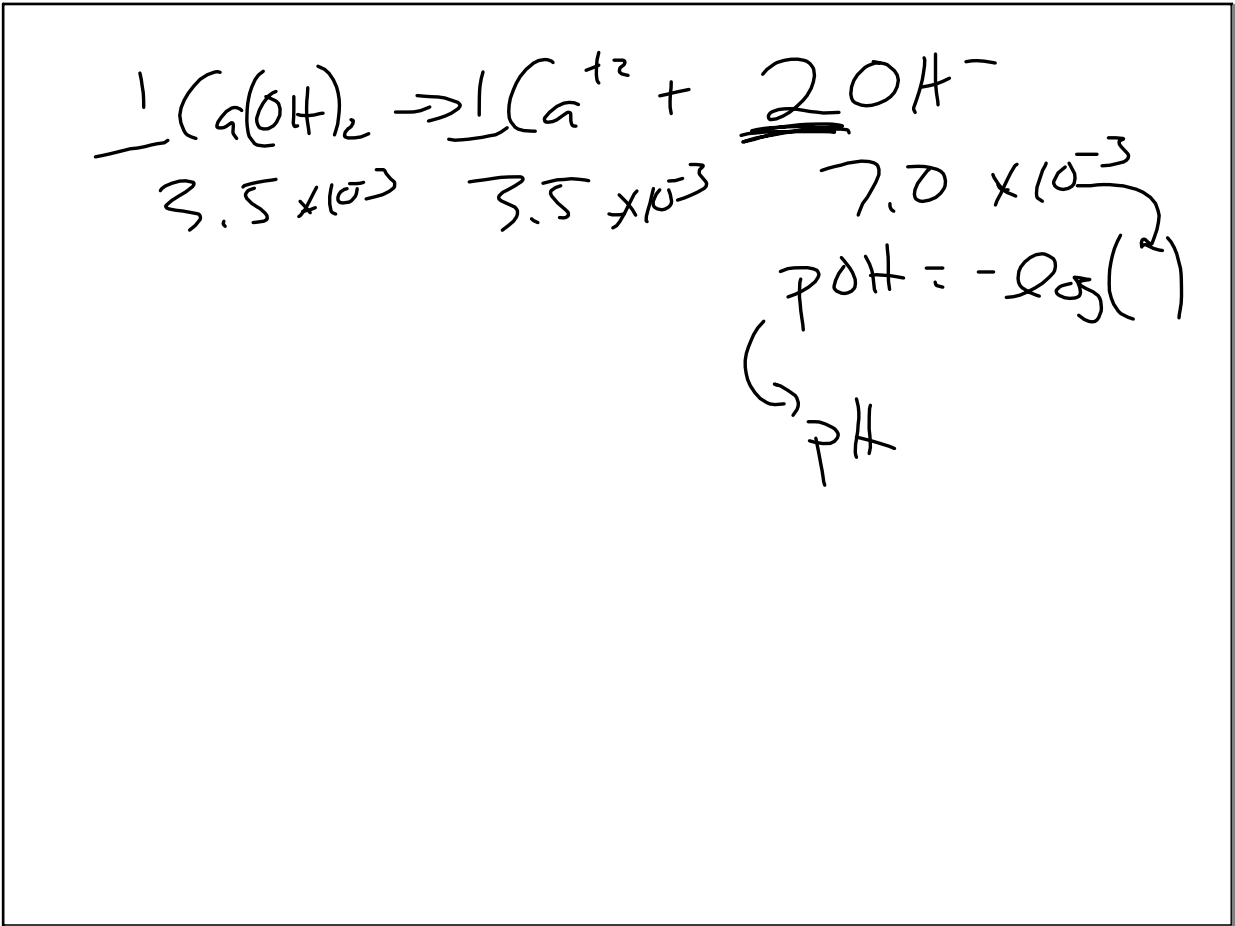 1 Ca(OH)₂ → 1 Ca⁺² + 2 OH⁻
3.5 x10⁻³ 3.5 x10⁻³ 7.0 x10⁻³
pOH = -log( )
pH